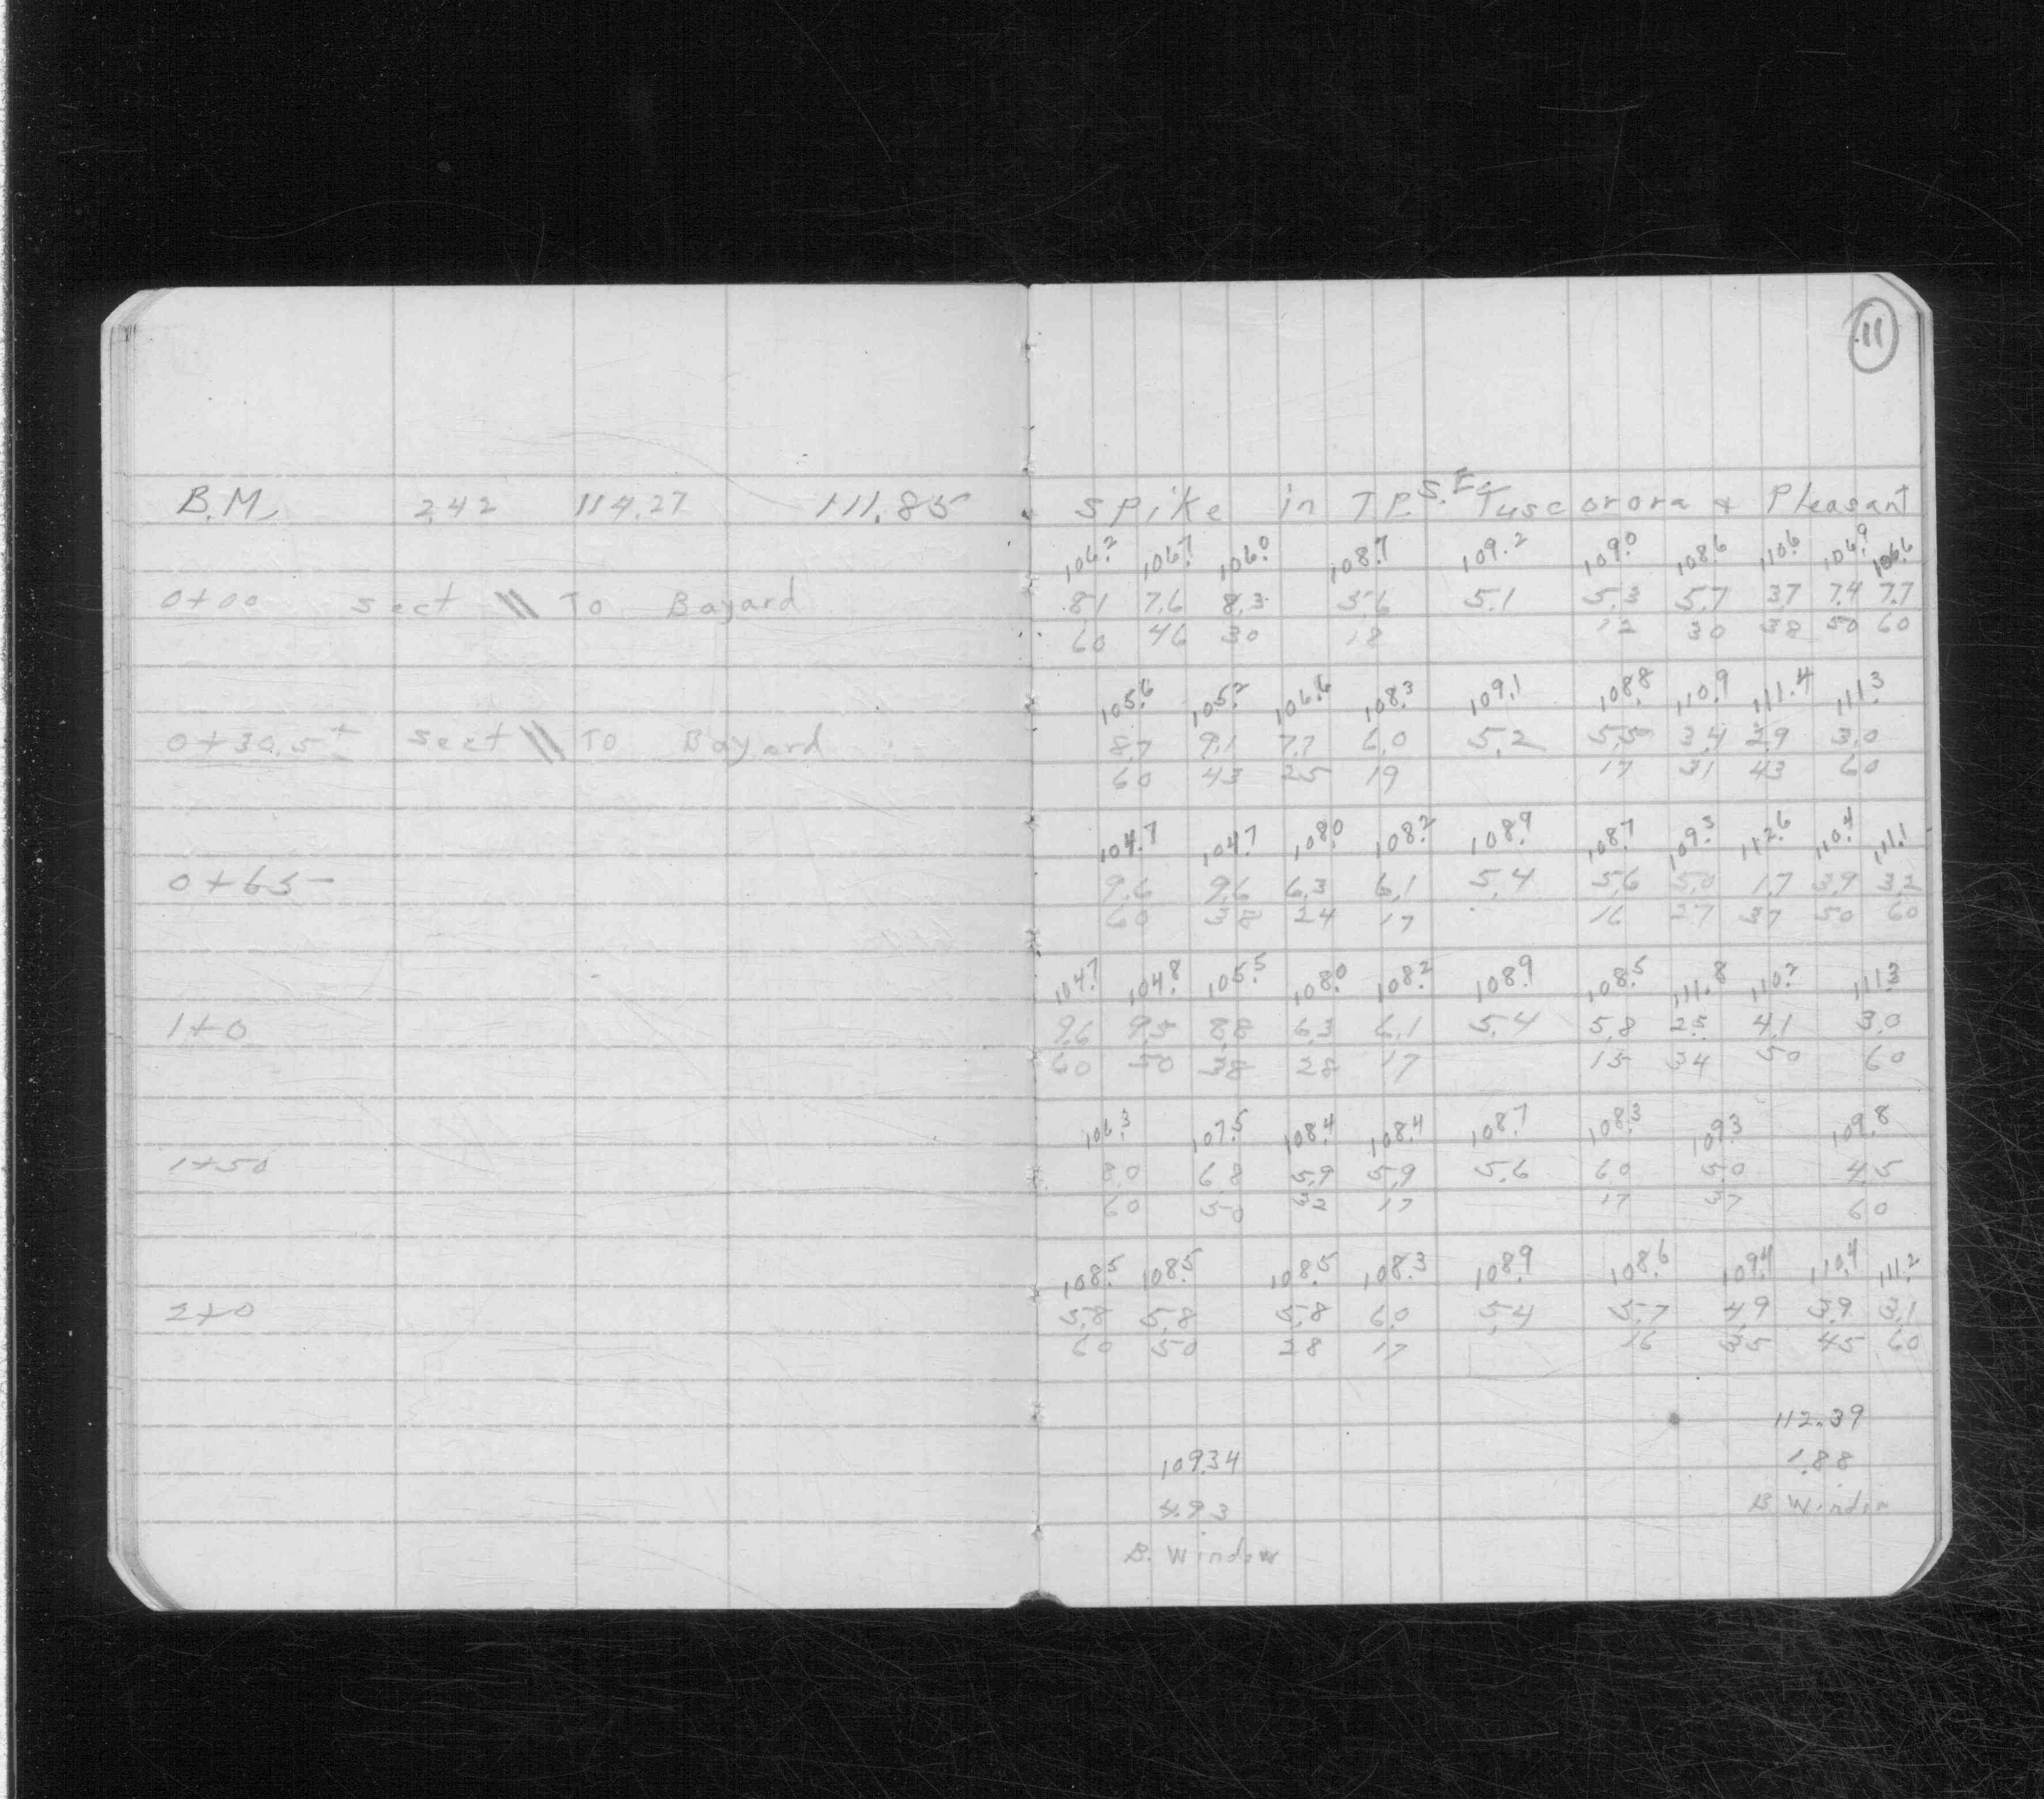 11
B.M. 2.42 114.27 111.85 Spike in T.P. S.E. Tuscorora & Pleasant
106.2 106.7 106.0 108.7 109.2 109.0 108.6 110.6 106.9 106.6
0+00 Sect \\ TO Bayard 8.1 7.6 8.3 5.6 5.1 5.3 5.7 3.7 7.4 7.7
60 46 30 18 12 30 38 50 60
105.6 105.2 106.6 108.3 109.1 108.8 110.9 111.4 111.3
0+30.5± Sect \\ TO Bayard 8.7 9.1 7.7 6.0 5.2 5.5 3.4 2.9 3.0
60 43 25 19 17 31 43 60
104.7 104.7 108.0 108.2 108.9 108.7 109.3 112.6 110.4 111.1
0+65 9.6 9.6 6.3 6.1 5.4 5.6 5.0 1.7 3.9 3.2
60 38 24 17 16 27 37 50 60
104.7 104.8 105.5 108.0 108.2 108.9 108.5 111.8 110.2 111.3
1+0 9.6 9.5 8.8 6.3 6.1 5.4 5.8 2.5 4.1 3.0
60 50 38 28 17 15 34 50 60
106.3 107.5 108.4 108.4 108.7 108.3 109.3 109.8
1+50 8.0 6.8 5.9 5.9 5.6 6.0 5.0 4.5
60 50 32 17 17 37 60
108.5 108.5 108.5 108.3 108.9 108.6 109.4 110.4 111.2
2+0 5.8 5.8 5.8 6.0 5.4 5.7 4.9 3.9 3.1
60 50 28 17 16 35 45 60
112.39
109.34 1.88
4.93 B. Window
B. Window